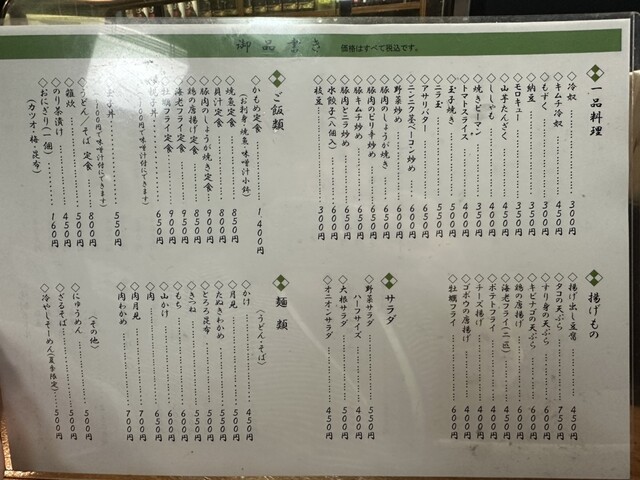 御品書き
価格はすべて税込です。
一品料理
◇冷奴……300円
◇キムチ冷奴……450円
◇もずく……300円
◇納豆……350円
◇モロキュー……350円
◇山芋たんざく……400円
◇ししゃも……450円
◇焼きピーマン……350円
◇トマトスライス……400円
◇玉子焼き……500円
◇ニラ玉……550円
◇アサリバター……650円
◇ニンニク茎ベーコン炒め……600円
◇野菜炒め……600円
◇豚肉のしょうが焼き……650円
◇豚肉のピリ辛炒め……650円
◇豚キムチ炒め……650円
◇豚肉とニラ炒め……650円
◇水餃子(八個入)……600円
◇枝豆……300円
ご飯類
◇かもめ定食……1400円
(お刺身・焼魚・味噌汁・小鉢)
◇焼魚定食……850円
◇貝汁定食……850円
◇豚肉のしょうが焼き定食……900円
◇鶏の唐揚げ定食……850円
◇海老フライ定食……900円
◇牡蠣フライ定食……900円
丼……650円
100円で味噌汁付にできます)
玉子丼……550円
100円で味噌汁付にできます)
◇うどん/そば 定食……800円
◇雑炊……500円
◇のり茶漬け……450円
◇おにぎり(一個)……160円
(カツオ・梅・昆布)
揚げもの
◇揚げ出し豆腐……450円
◇タコの天ぷら……750円
◇すり身の天ぷら……600円
◇キビナゴの天ぷら……600円
◇鶏の唐揚げ……600円
◇海老フライ(二匹)……450円
◇ポテトフライ……400円
◇チーズ揚げ……400円
◇ゴボウの唐揚げ……400円
◇牡蠣フライ……600円
サラダ
◇野菜サラダ……550円
ハーフサイズ……400円
◇大根サラダ……500円
◇オニオンサラダ……450円
麺類
(うどん・そば)
◇かけ……450円
◇月見……500円
◇わかめ……500円
◇たぬき……500円
◇とろろ昆布……550円
◇きつね……550円
◇もち……600円
◇山かけ……600円
◇肉……650円
◇肉月見……700円
◇肉わかめ……700円
(その他)
◇にゅうめん……500円
◇ざるそば……500円
◇冷やしそーめん(夏季限定)……500円